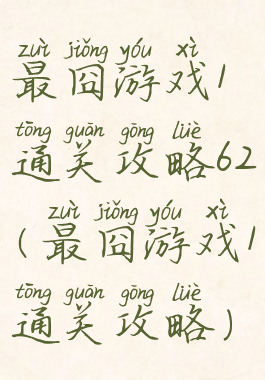 zuì jiǒng yóu xì
最囧游戏1
tōng guān gōng lüè
通关攻略62
zuì jiǒng yóu xì
(最囧游戏1
tōng guān gōng lüè
通关攻略)